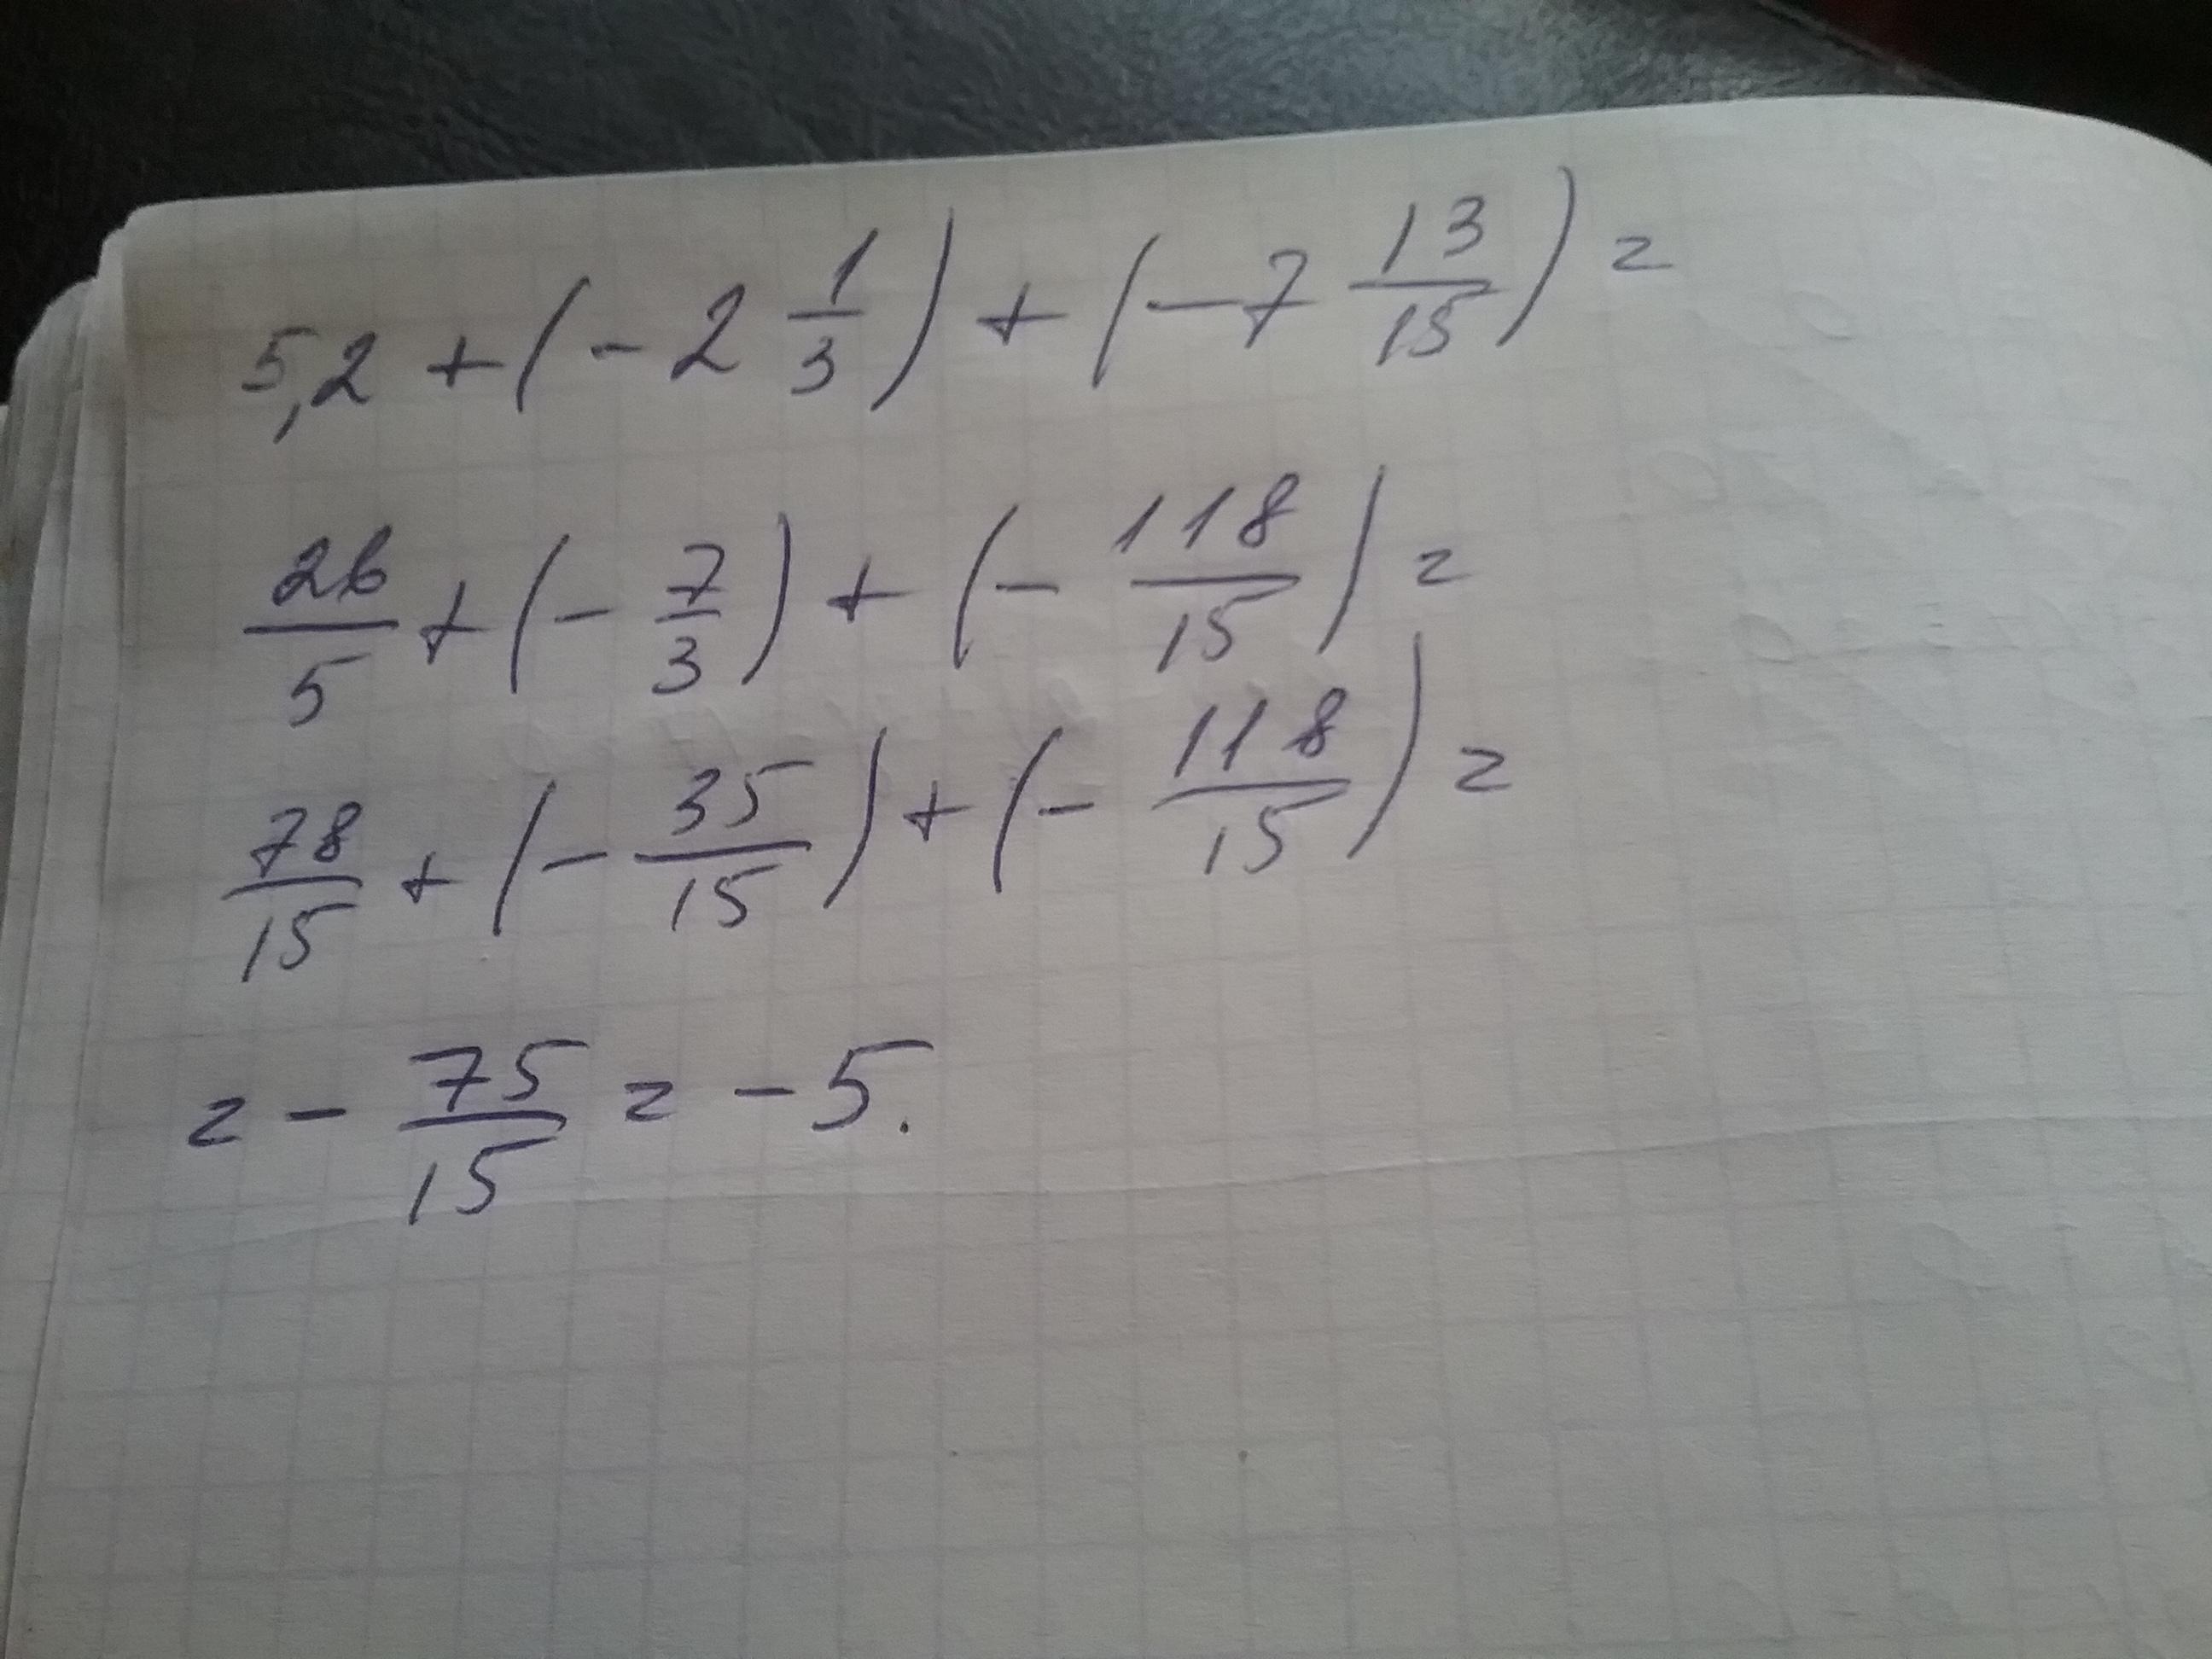 5,2 + (- 2 1/3) + (- 7 13/15) =
26/5 + (- 7/3) + (- 118/15) =
78/15 + (- 35/15) + (- 118/15) =
= - 75/15 = - 5.